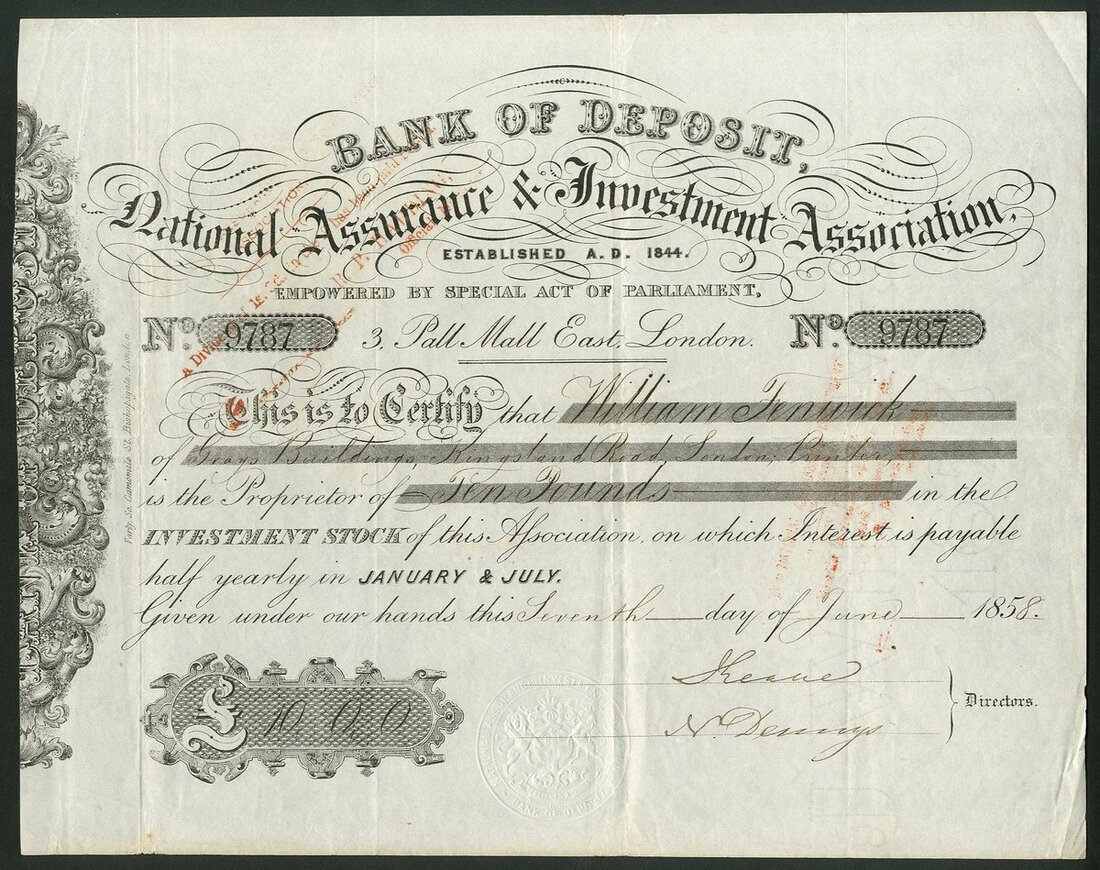 BANK OF DEPOSIT,
National Assurance & Investment Association,
ESTABLISHED A.D. 1844.
EMPOWERED BY SPECIAL ACT OF PARLIAMENT,
No. 9787 3, Pall Mall East, London. No. 9787
This is to Certify that William Fenwick
of Grays Buildings, Kingsland Road, London, Printer
is the Proprietor of Ten Pounds in the
INVESTMENT STOCK of this Association, on which Interest is payable
half yearly in JANUARY & JULY.
Given under our hands this Seventh day of June 1858.
£ 10.0.0
Directors.
A Dividend
BANK OF DEPOSIT
London